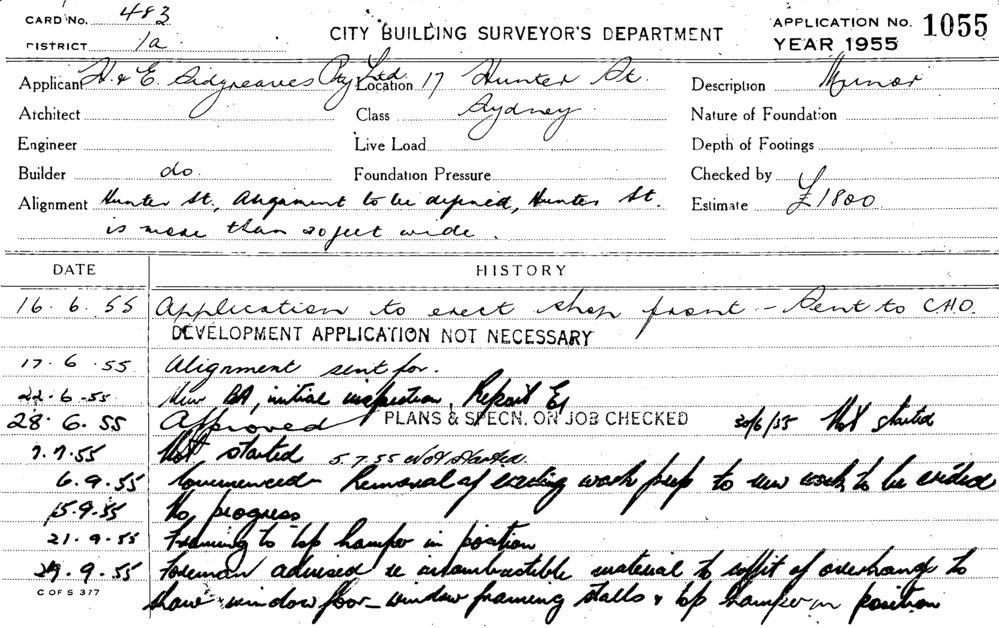 CARD No. 483
DISTRICT 1a
CITY BUILDING SURVEYOR'S DEPARTMENT
APPLICATION No. 1055
YEAR 1955
Applicant H & E. Sidgreaves Pty Ltd. Location 17 Hunter St. Description Minor
Architect Class Sydney Nature of Foundation
Engineer Live Load Depth of Footings
Builder do. Foundation Pressure Checked by
Alignment Hunter St., Alignment to be defined, Hunter St. Estimate £1800
is more than 20 feet wide.
DATE HISTORY
16.6.55 Application to erect shop front - Sent to C.H.O.
DEVELOPMENT APPLICATION NOT NECESSARY
17.6.55 Alignment sent for.
22.6.55 New BA, initial inspection, Report
28.6.55 Approved PLANS & SPECN. ON JOB CHECKED 30/6/55 Not started
7.7.55 Not started 5.7.55 Not started.
6.9.55 Commenced - Removal of existing work prep to new work to be
15.9.55 No progress
21.9.55 Framing to top hamper in position
29.9.55 Foreman advised re incombustible material to soffit of overhang to
C OF S 377
show window floor - window framing stalls & top hamper in position